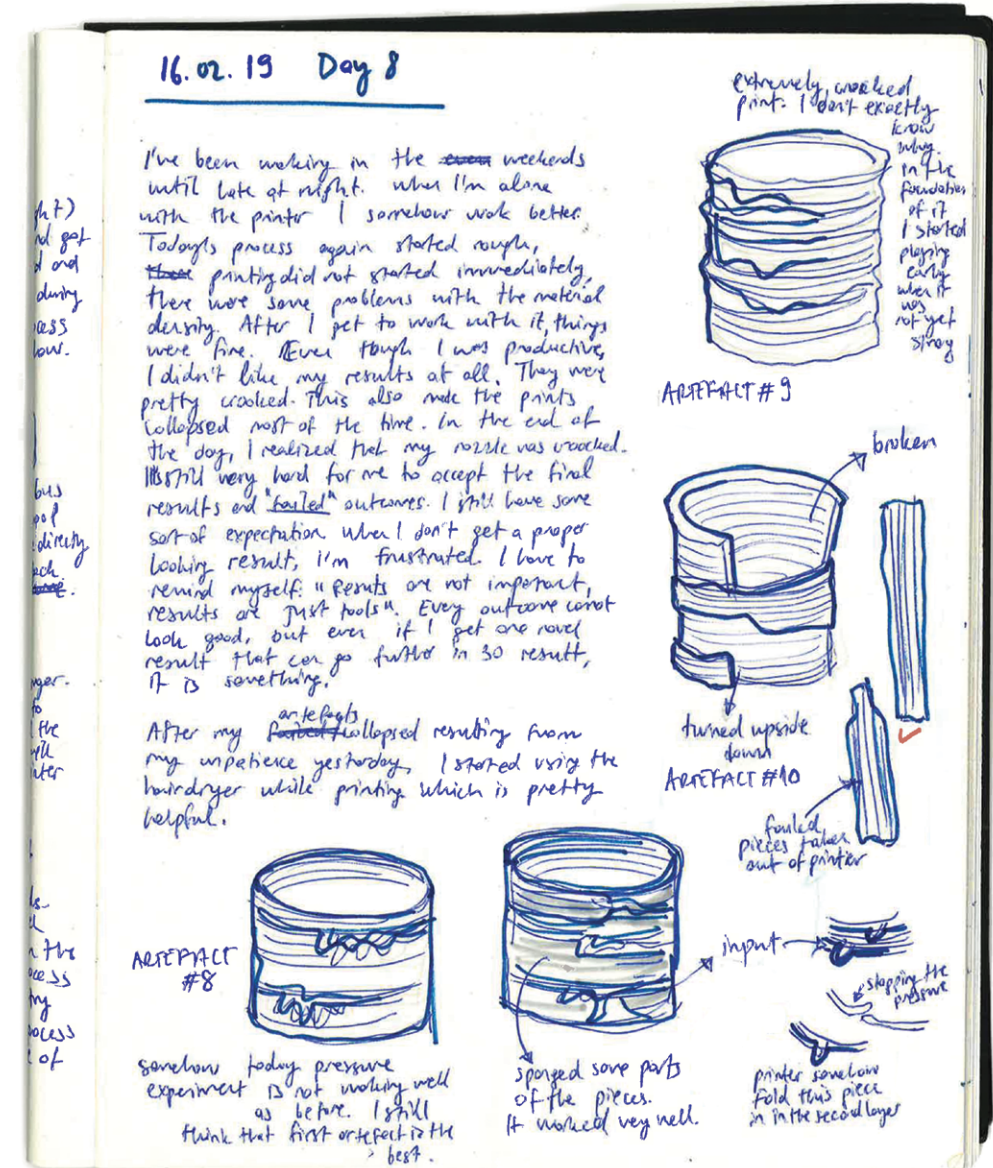 16.02.19 Day 8
I've been working in the weekends
until late at night. when I'm alone
with the printer I somehow work better.
Today's process again started rough,
printing did not started immediately,
there were some problems with the material
density. After I get to work with it, things
were fine. Even tough I was productive,
I didn't like my results at all. They were
pretty crooked. This also made the prints
collapsed most of the time. In the end of
the day, I realized that my nozzle was croocked.
It's still very hard for me to accept the final
results and "failed" outcomes. I still have some
sort of expectation when I don't get a proper
looking result, i'm frustrated. I have to
remind myself: "Resuts are not important,
results are just tools". Every outcome cannot
look good, but even if I get one novel
result that can go further in 30 result,
it is something.
After my artefacts collapsed resulting from
my unpatience yesterday, I started using the
hairdryer while printing which is pretty
helpful.
extremely crooked
print. I don't exactly
know
why.
in the
foundation
of it
I started
playing
early
when it
was
not yet
strong
ARTEFACT #9
broken
turned upside
down
ARTEFACT #10
failed
pieces taken
out of printer
ARTEFACT
#8
somehow today pressure
experiment is not working well
as before. I still
think that first artefact is the
best.
sponged some parts
of the pieces.
It worked very well.
input
stopping the
pressure
printer somehow
fold this piece
in in the second layer
ht)
nd got
d and
during
ocess
low.
bus
ool
directly
ack
nger.
to
the
nter
ls.
n the
ocess
try
rocess
e of